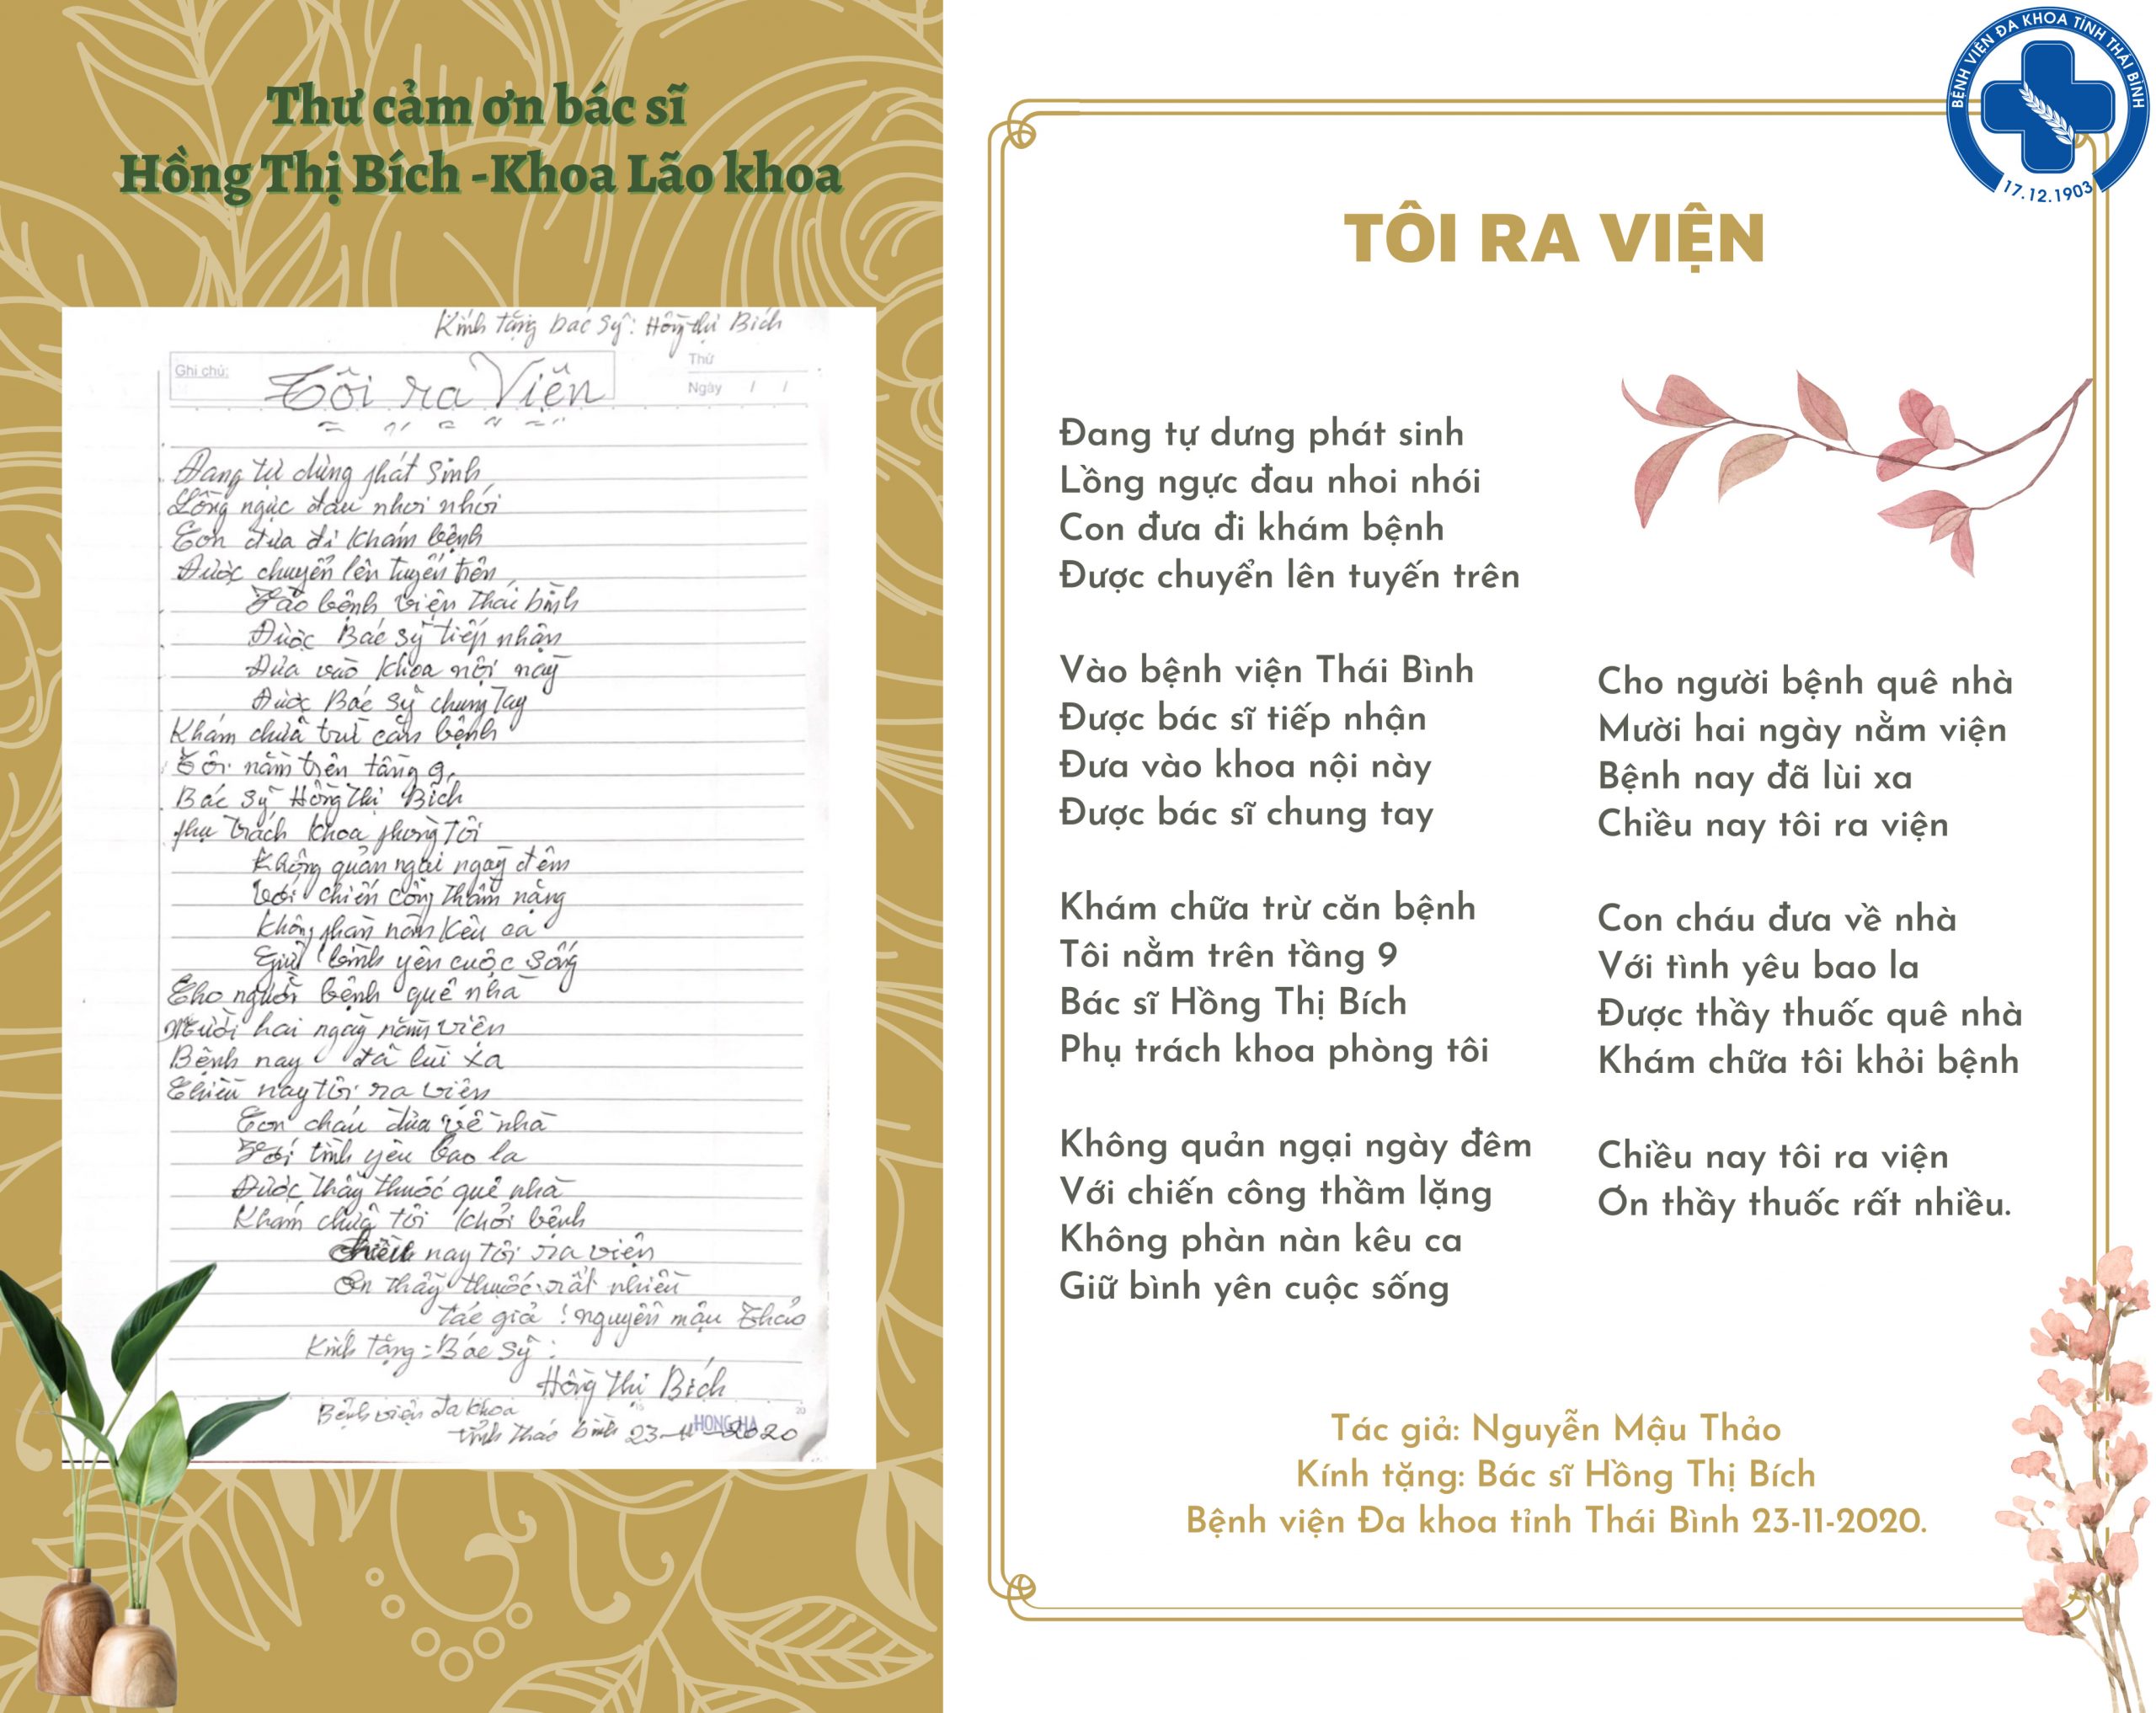 Thư cảm ơn bác sĩ
Hồng Thị Bích -Khoa Lão khoa
Kính tặng bác sỹ: Hồng thị Bích
Ghi chú:
Thứ
Ngày / /
Tôi ra Viện
Đang tự dưng phát sinh
Lồng ngực đau nhoi nhói
Con đưa đi khám bệnh
Được chuyển lên tuyến trên
Vào bệnh viện Thái bình
Được Bác sỹ tiếp nhận
Đưa vào khoa nội này
Được Bác sỹ chung tay
Khám chữa trừ căn bệnh
Tôi nằm trên tầng 9,
Bác sỹ Hồng Thị Bích
phụ trách khoa phòng tôi
Không quản ngại ngày đêm
Với chiến công thầm nặng
không phàn nàn kêu ca
Giữ bình yên cuộc sống
Cho người bệnh quê nhà
Mười hai ngày nằm viện
Bệnh nay đã lùi xa
Chiều nay tôi ra viện
Con cháu đưa về nhà
Với tình yêu bao la
Được thầy thuốc quê nhà
Khám chữa tôi khỏi bệnh
Chiều nay tôi ra viện
Ơn thầy thuốc rất nhiều
Tác giả: nguyễn mậu Thảo
Kính tặng: Bác sỹ:
Hồng Thị Bích
Bệnh viện đa khoa
tỉnh thái bình 23-11-2020
HONG HA
BỆNH VIỆN ĐA KHOA TỈNH THÁI BÌNH
17.12.1903
TÔI RA VIỆN
Đang tự dưng phát sinh
Lồng ngực đau nhoi nhói
Con đưa đi khám bệnh
Được chuyển lên tuyến trên
Vào bệnh viện Thái Bình
Được bác sĩ tiếp nhận
Đưa vào khoa nội này
Được bác sĩ chung tay
Khám chữa trừ căn bệnh
Tôi nằm trên tầng 9
Bác sĩ Hồng Thị Bích
Phụ trách khoa phòng tôi
Không quản ngại ngày đêm
Với chiến công thầm lặng
Không phàn nàn kêu ca
Giữ bình yên cuộc sống
Cho người bệnh quê nhà
Mười hai ngày nằm viện
Bệnh nay đã lùi xa
Chiều nay tôi ra viện
Con cháu đưa về nhà
Với tình yêu bao la
Được thầy thuốc quê nhà
Khám chữa tôi khỏi bệnh
Chiều nay tôi ra viện
Ơn thầy thuốc rất nhiều.
Tác giả: Nguyễn Mậu Thảo
Kính tặng: Bác sĩ Hồng Thị Bích
Bệnh viện Đa khoa tỉnh Thái Bình 23-11-2020.